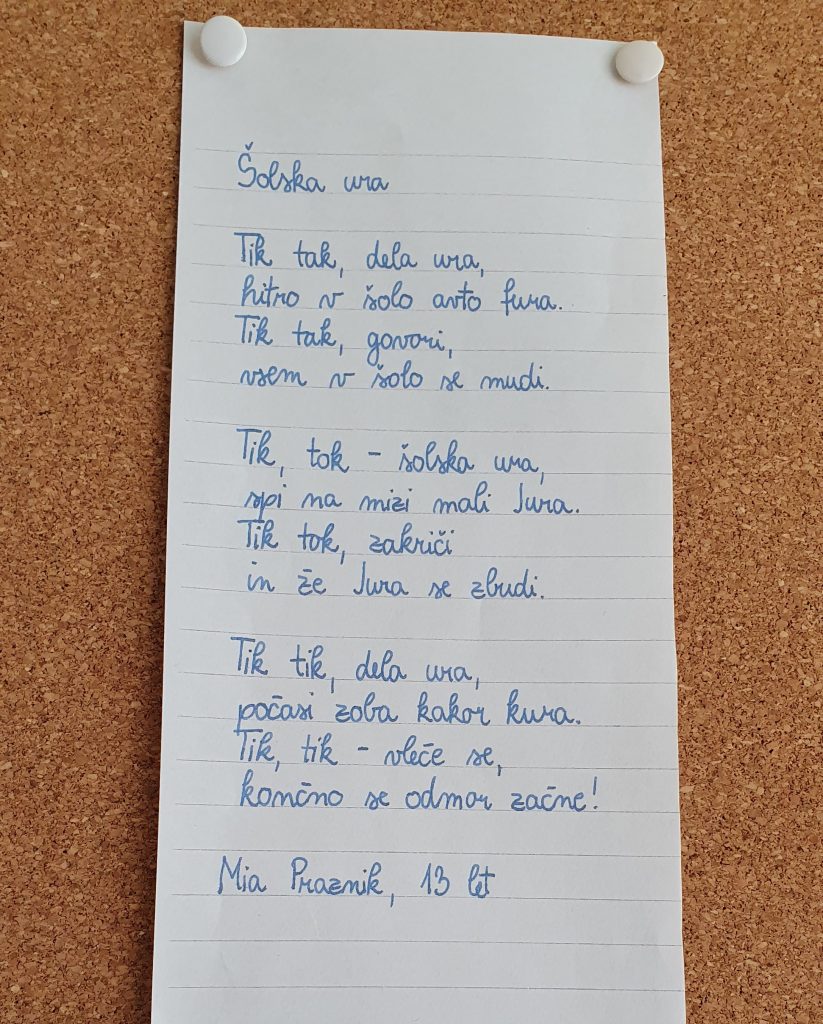 Šolska ura
Tik tak, dela ura,
hitro v šolo avto fura.
Tik tak, govori,
vsem v šolo se mudi.
Tik, tok - šolska ura,
spi na mizi mali Jura.
Tik tok, zakriči
in že Jura se zbudi.
Tik tik, dela ura,
počasi zoba kakor kura.
Tik, tik - vleče se,
končno se odmor začne!
Mia Praznik, 13 let